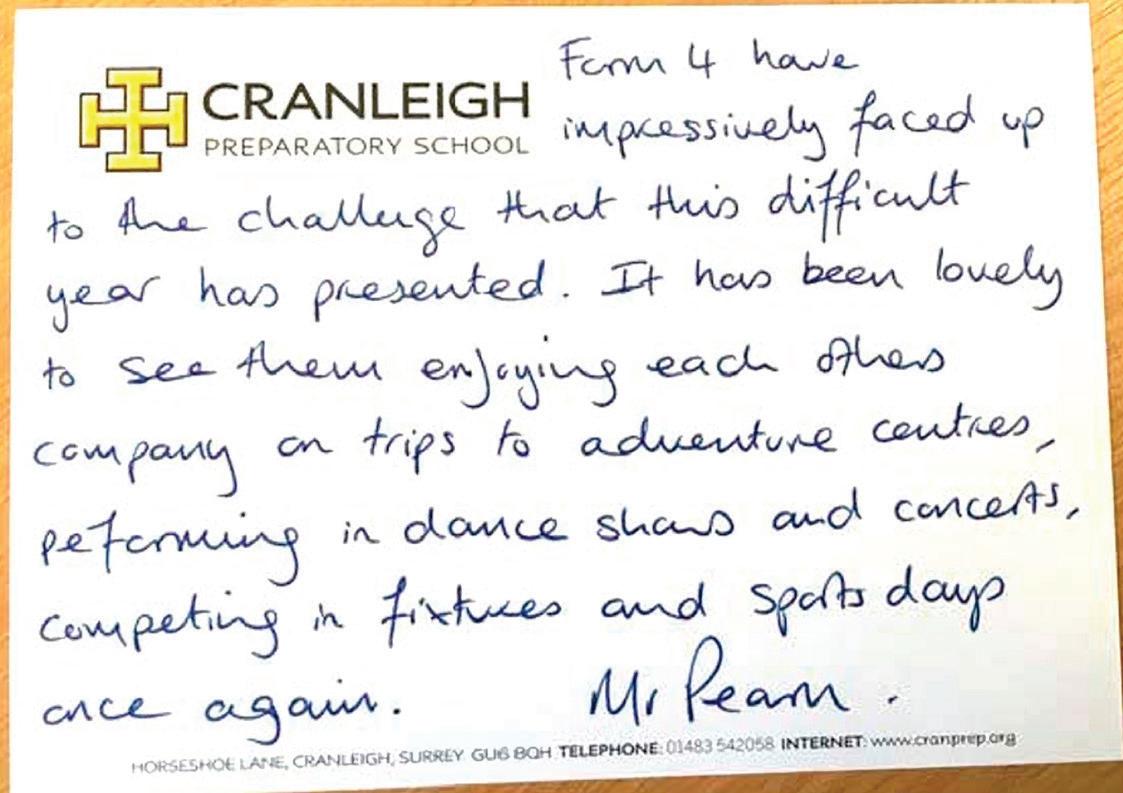 CRANLEIGH
PREPARATORY SCHOOL
Form 4 have
impressively faced up
to the challenge that this difficult
year has presented. It has been lovely
to see them enjoying each others
company on trips to adventure centres,
peforming in dance shows and concerts,
competing in fixtures and sports days
once again. Mr Pearn.
HORSESHOE LANE, CRANLEIGH, SURREY GU6 8QH TELEPHONE: 01483 542058 INTERNET: www.cranprep.org